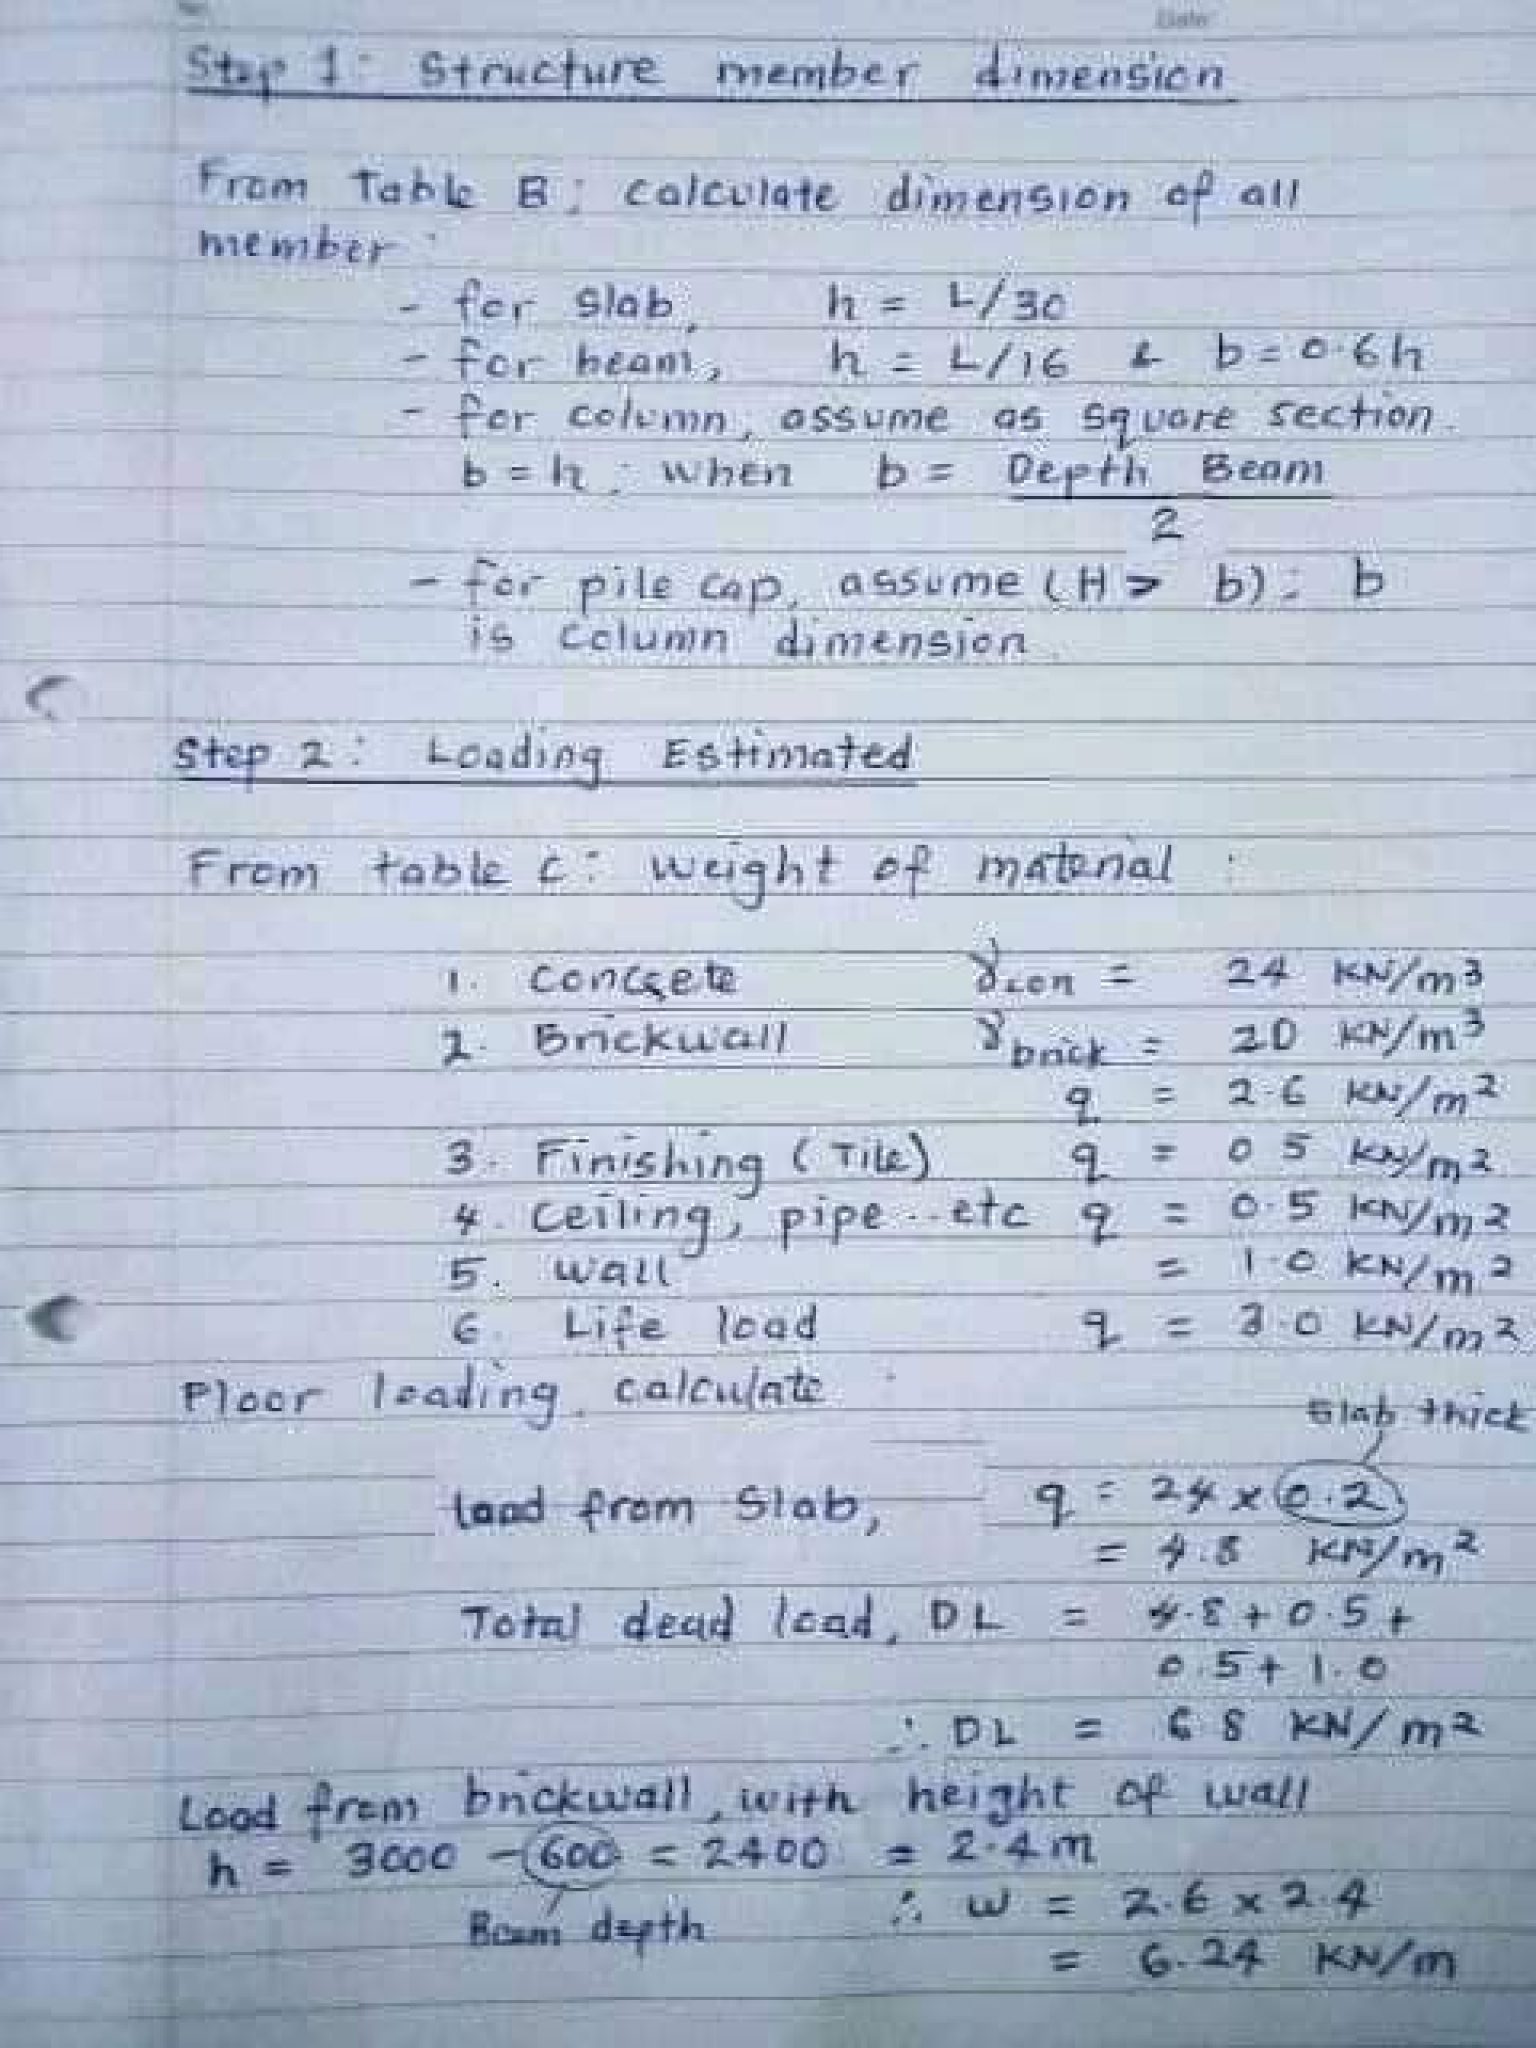 Date
Step 1: Structure member dimension
From Table B: calculate dimension of all
member:
- for slab, h = L/30
- for beam, h = L/16 & b = 0.6h
- for column, assume as square section.
b = h; when b = Depth Beam
2
- for pile cap, assume (H > b): b
is column dimension.
Step 2: Loading Estimated
From table C: weight of material:
1. Concrete γcon = 24 KN/m3
2. Brickwall γbrick = 20 KN/m3
q = 2.6 KN/m2
3. Finishing (Tile) q = 0.5 KN/m2
4. Ceiling, pipe...etc q = 0.5 KN/m2
5. Wall = 1.0 KN/m2
6. Life load q = 3.0 KN/m2
Floor loading, calculate:
Slab thick
Load from Slab, q = 24 x 0.2
= 4.8 KN/m2
Total dead load, DL = 4.8 + 0.5 +
0.5 + 1.0
∴ DL = 6.8 KN/m2
Load from brickwall, with height of wall
h = 3000 - 600 = 2400 = 2.4m
∴ w = 2.6 x 2.4
Beam depth
= 6.24 KN/m